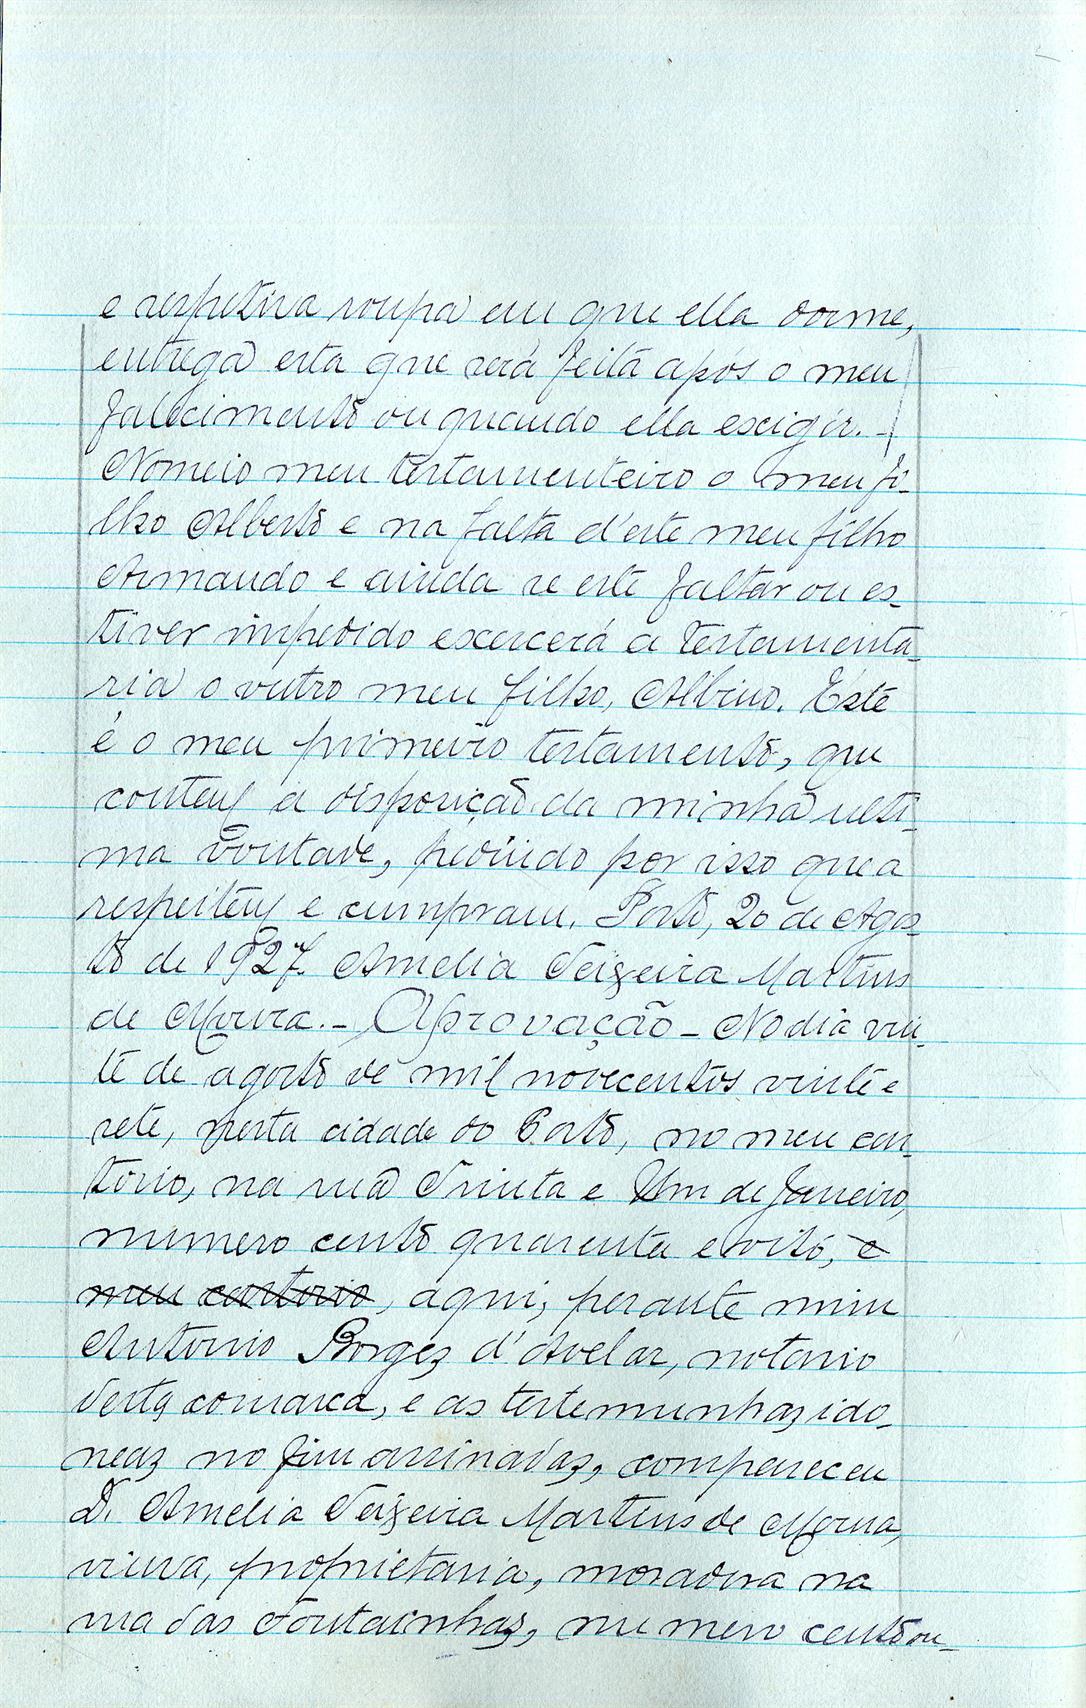 e respetiva roupa em que ella dorme,
entrega esta que será feita após o meu
falecimento ou quando ella escigir. –
Nomeio meu testamenteiro o meu fi-
lho Alberto e na falta d'este meu filho
Armando e ainda se este faltar ou es-
tiver impedido escercerá a testamenta-
ria o outro meu filho, Albino. Este
é o meu primeiro testamento, que
contem a disposição da minha ulti-
ma vontade, pedindo por isso que a
respeitem e cumpram. Porto, 20 de Agos-
to de 1927. Amelia Teixeira Martins
de Moura. – Aprovação – No dia vin-
te de agosto de mil novecentos vinte e
sete, nesta cidade do Porto, no meu car-
torio, na rua Trinta e Um de Janeiro,
numero cento quarenta e oito, e
meu cartorio, aqui, perante mim
Antonio Borges d'Avelar, notario
desta comarca, e as testemunhas ido-
neas no fim assinadas, compareceu
D. Amelia Teixeira Martins de Moura,
viuva, proprietaria, moradora na
rua das Fontainhas, numero cento ou-